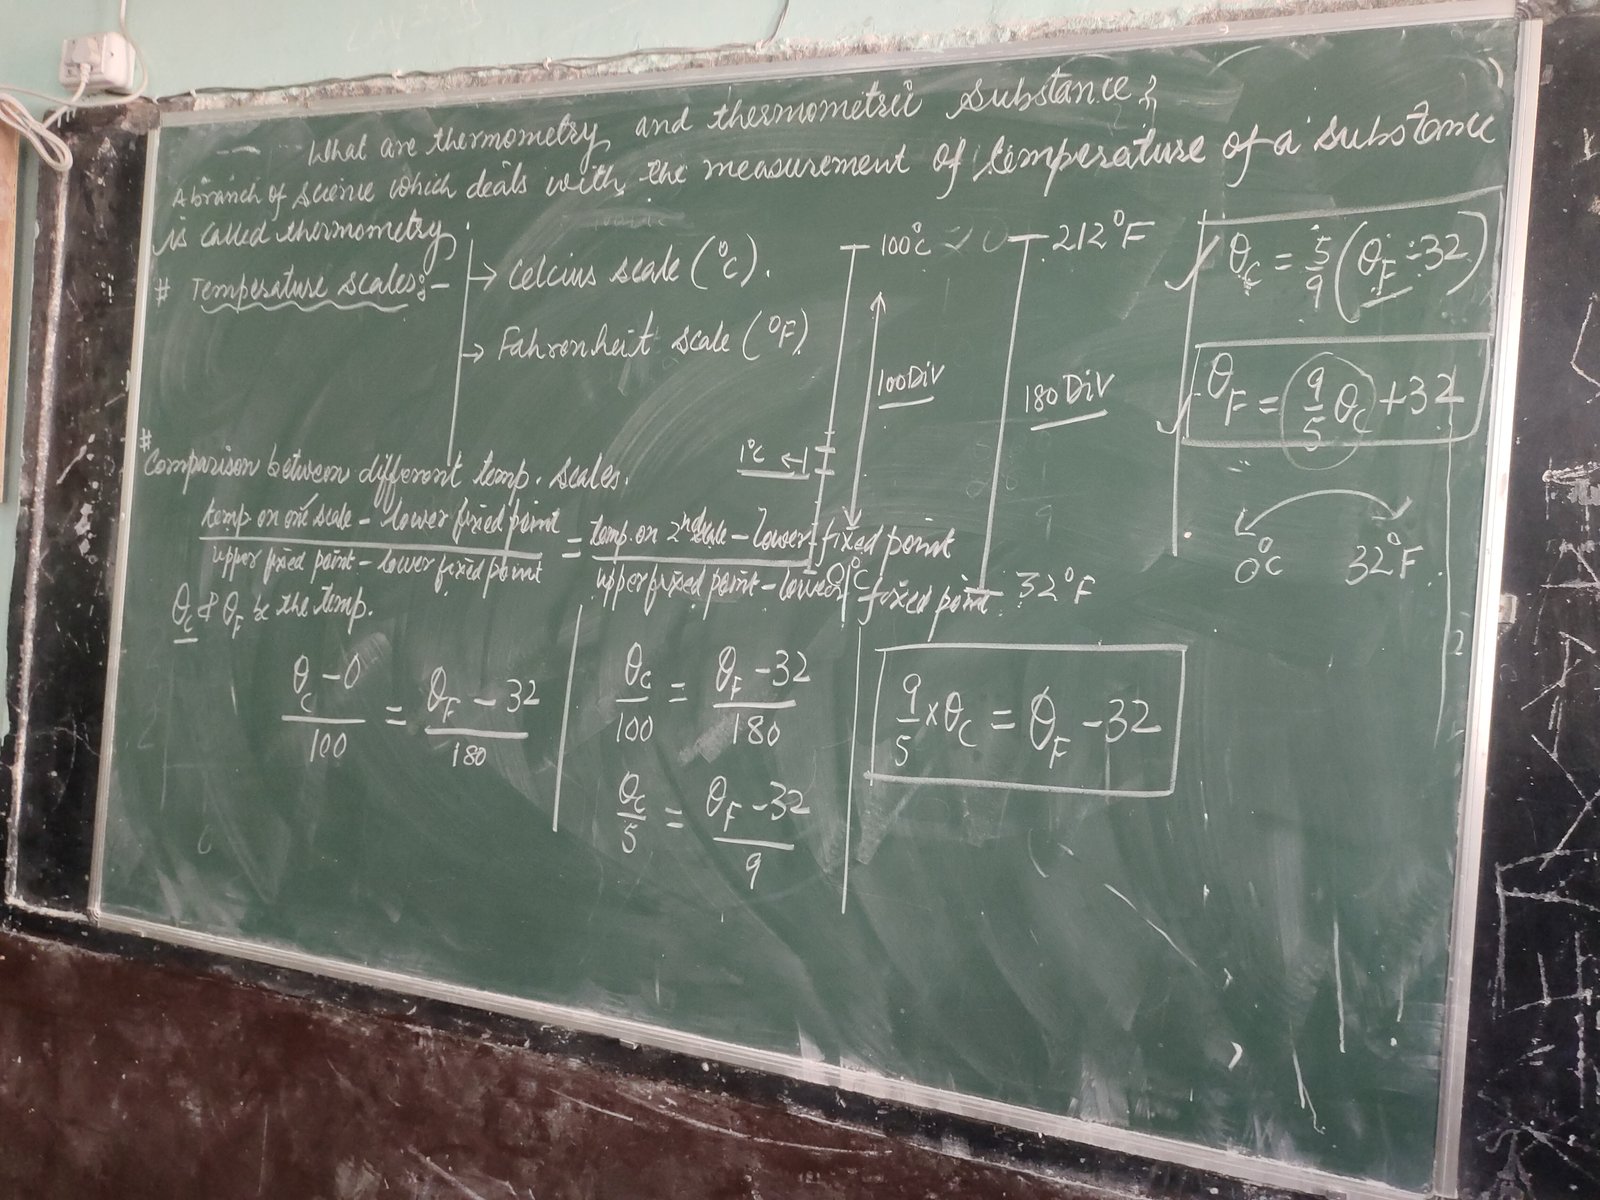 What are thermometry and thermometric substance?
A branch of science which deals with the measurement of temperature of a substance
is called thermometry
# Temperature scales:-
→ Celcius scale (°C).
→ Fahrenheit scale (°F)
100°C
212°F
100 Div
180 Div
1°C ←
0°C
32°F
θC = 5/9 (θF - 32)
θF = 9/5 θC + 32
0°C 32°F
#
Comparison between different temp. scales.
temp on one scale - lower fixed point / upper fixed point - lower fixed point = temp. on 2nd scale - lower fixed point / upper fixed point - lower fixed point
θC & θF be the temp.
θC - 0 / 100 = θF - 32 / 180
θC / 100 = θF - 32 / 180
θC / 5 = θF - 32 / 9
9/5 × θC = θF - 32